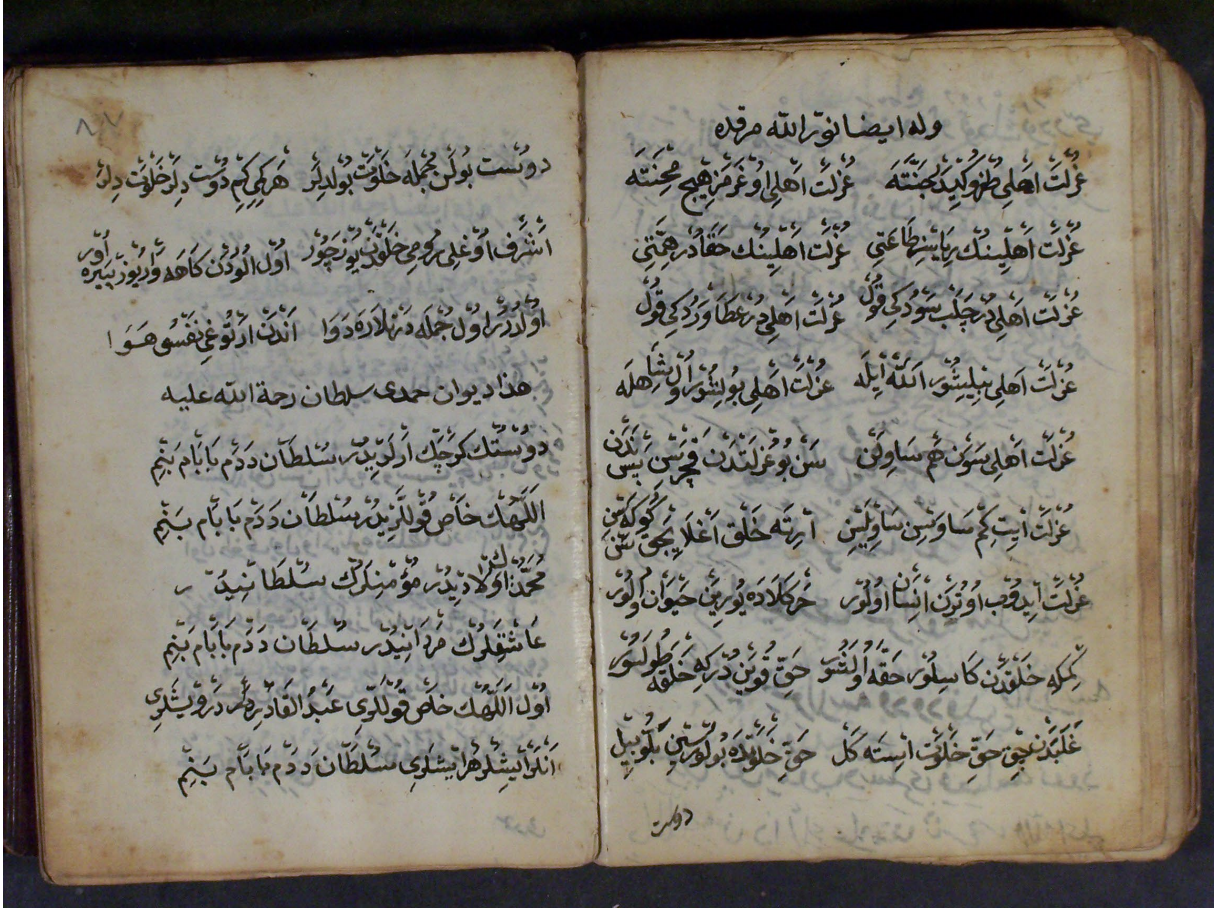 وله ايضا نور الله مرقده
عزلت اهلى طغرو كيدر جنته عزلت اهلى اوغرمز هيچ محنته
عزلت اهلينك رياسز طاعتى عزلت اهلينك حقادر همتى
عزلت اهلى در چلب سودكى قول عزلت اهلى در عطا وردكى قول
عزلت اهلى بيليشور الله ايله عزلت اهلى بولشور اول شاهله
عزلت اهلى سون هم ساولن سن بو عزلتدن قچرسن پس ندن
عزلت ايت كم ساوسن ساولسن ارته خلق اغلايجق سن كوله سن
عزلت ايدوب اوتورن انسان اولور خركلاده يورين حيوان اولور
كمكه خلقدن كاسلور حقه اولشور حق قوين در كه خلقه طولشور
غلبه دن چق حق خلوت استه كل حق خلوتده بولورسن بللو بيل
دوست
٨٧
دوست بولن جمله خلوت بولديلر هر كم كم دوست ديلر خلوت ديلر
اشرف اوغلى رومى خلوتن يوز چور اول الودن كاهه واريوز پيره اور
اولدرر اول جمله درتلاره دوا اندن ارتوغى نفس هوا
هذا ديوان حمدى سلطان رحمة الله عليه
دوستك كرچك ارلريدر سلطان ددم بابام بنم
اللهك خاص قوللريدر سلطان ددم بابام بنم
محمدك اولاديدر مؤمنلرك سلطانيدر
عاشقلرك مردانيدر سلطان ددم بابام بنم
اول اللهك خاص قوللرى عبد القادر در درويشلرى
انلر ايشلر هر ايشلرى سلطان ددم بابام بنم